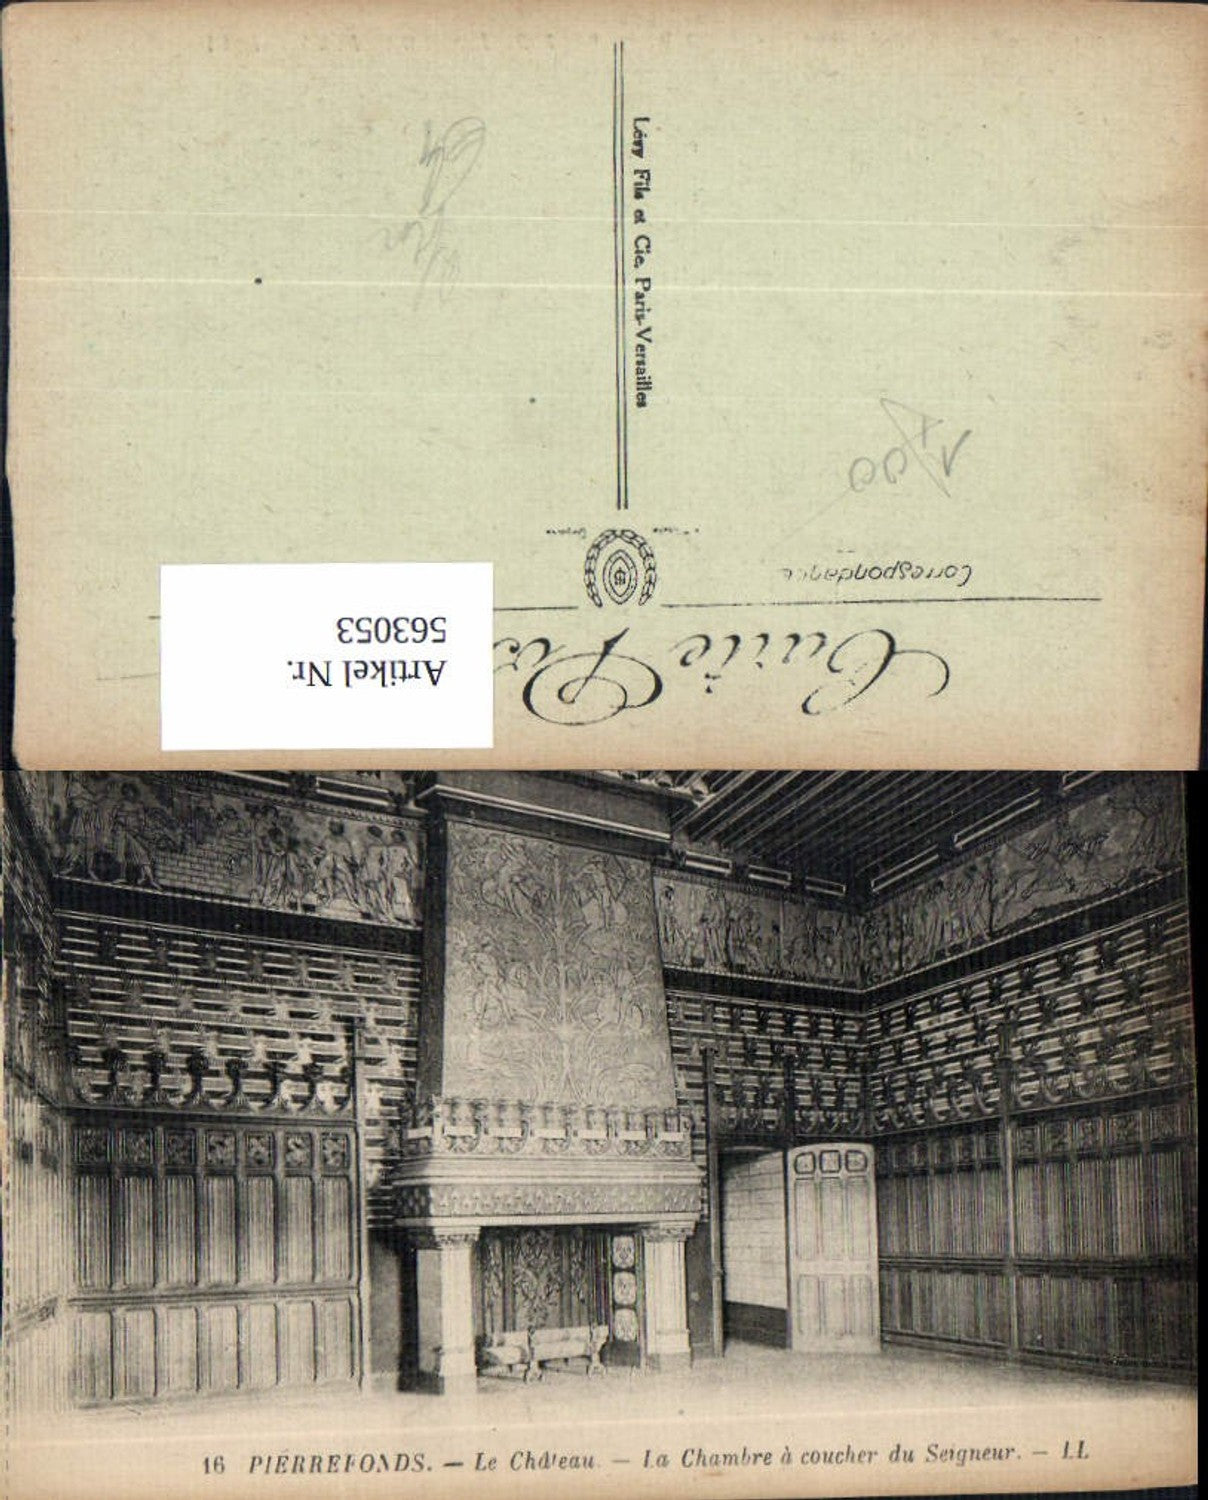 Lévy Fils et Cie. Paris-Versailles
1,00
Correspondance
Carte Pos
Artikel Nr.
563053
16 PIERREFONDS. — Le Château. — La Chambre à coucher du Seigneur. — LL